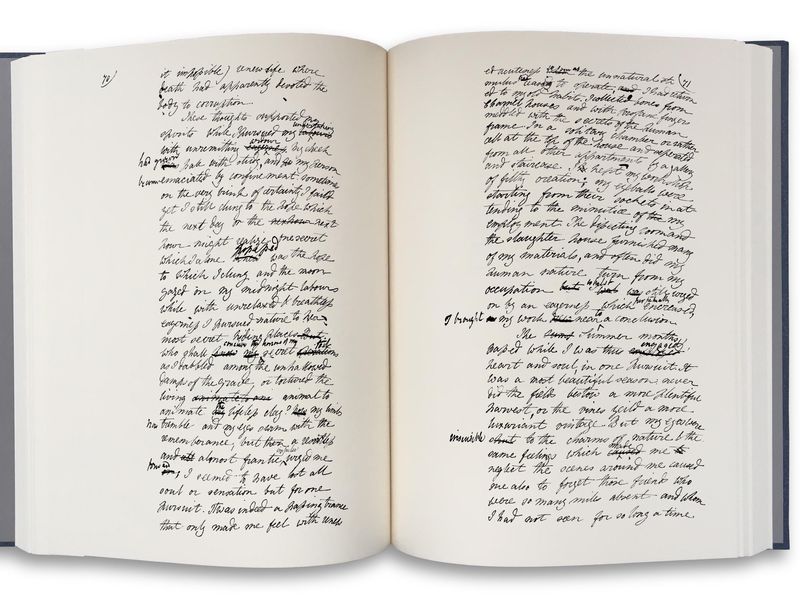 70
it impossible) renew life where
death had apparently devoted the
body to corruption.
These thoughts supported my
spirits while I pursued my undertaking
with unremitting
ardour
my cheek
had grown pale with study, and my person
become emaciated by confinement. sometimes
on the very brink of certainty I failed
yet I still clung to the hope which
the next day or the next
hour might realize. One secret
possessed
which I alone was the hope
to which I clung and the moon
gazed on my midnight labours
while with unrelaxed & breathless
eagerness I pursued nature to her
most secret hiding places
conceive the horrors of my
who shall secret toils
as I dabbled among the unhallowed
damps of the grave, or tortured the
living animal to
animate the lifeless clay? my limbs
now tremble and my eyes swim with the
remembrance, but then a resistless
impulse
and almost frantic urged me
forward; I seemed to have lost all
soul or sensation but for one
pursuit. It was indeed a passing trance
that only made me feel with renew
71
ed acuteness the unnatural sti
mulus
to operate, I had return
ed to my old habits. I collected bones from
charnel houses and with profane fingers
meddled with the secrets of the human
frame. In a solitary chamber or rather
cell at the top of the house and seperated
from all other appartments by a gallery
and staircase, I kept my workshop
of filthy creation; my eyeballs were
starting from their sockets in at
tending to the minutiæ of my
employment. The dissecting room and
the slaughter house furnished many
of my materials, and often did my
human nature turn from my
occupation
still urged
on by an eagerness which
perpetually
encreased,
I brought my work near to a conclusion
The summer months
passed while I was
engaged,
heart and soul, in one pursuit. It
was a most beautiful season never
did the fields bestow a more plentiful
harvest, or the vines yeild a more
luxuriant vintage. But my eyes were
insensible to the charms of nature & the
same feelings which made me
neglect the scenes around me caused
me also to forget those friends who
were so many miles absent and whom
I had not seen for so long a time